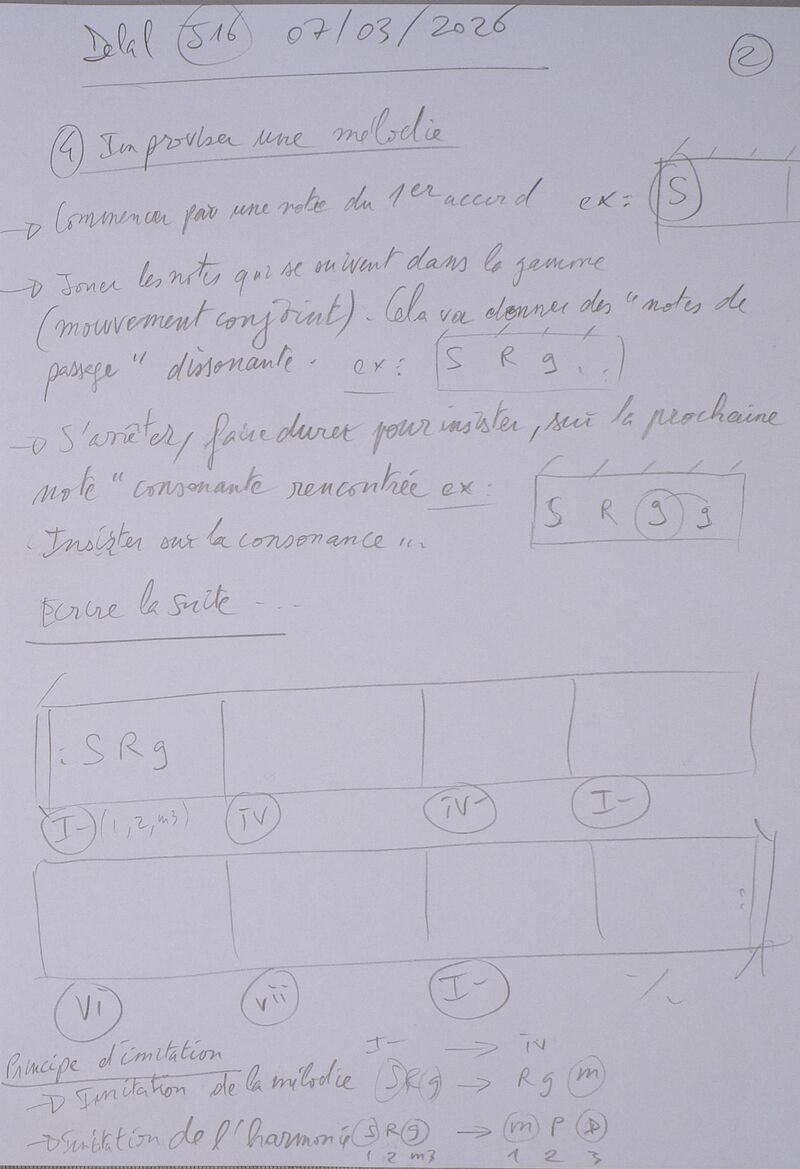 Delal J16 07/03/2026
2
4 Improviser une mélodie
→ Commencer par une note du 1er accord ex: S
→ Jouer les notes qui se suivent dans la gamme
(mouvement conjoint). Cela va donner des "notes de
passage" dissonante. ex: S R g ..
→ S'arrêter, faire durer pour insister, sur la prochaine
note "consonante rencontrée ex: S R g g
Insister sur la consonance ...
Ecrire la suite ...
: S R g
I- (1, 2, m3) iv iv- I-
:
Vi vii I- -/.
Principe d'imitation I- → iv
→ Imitation de la mélodie S R g → R g m
→ Imitation de l'harmonie S R g → m P D
1 2 m3 1 2 3